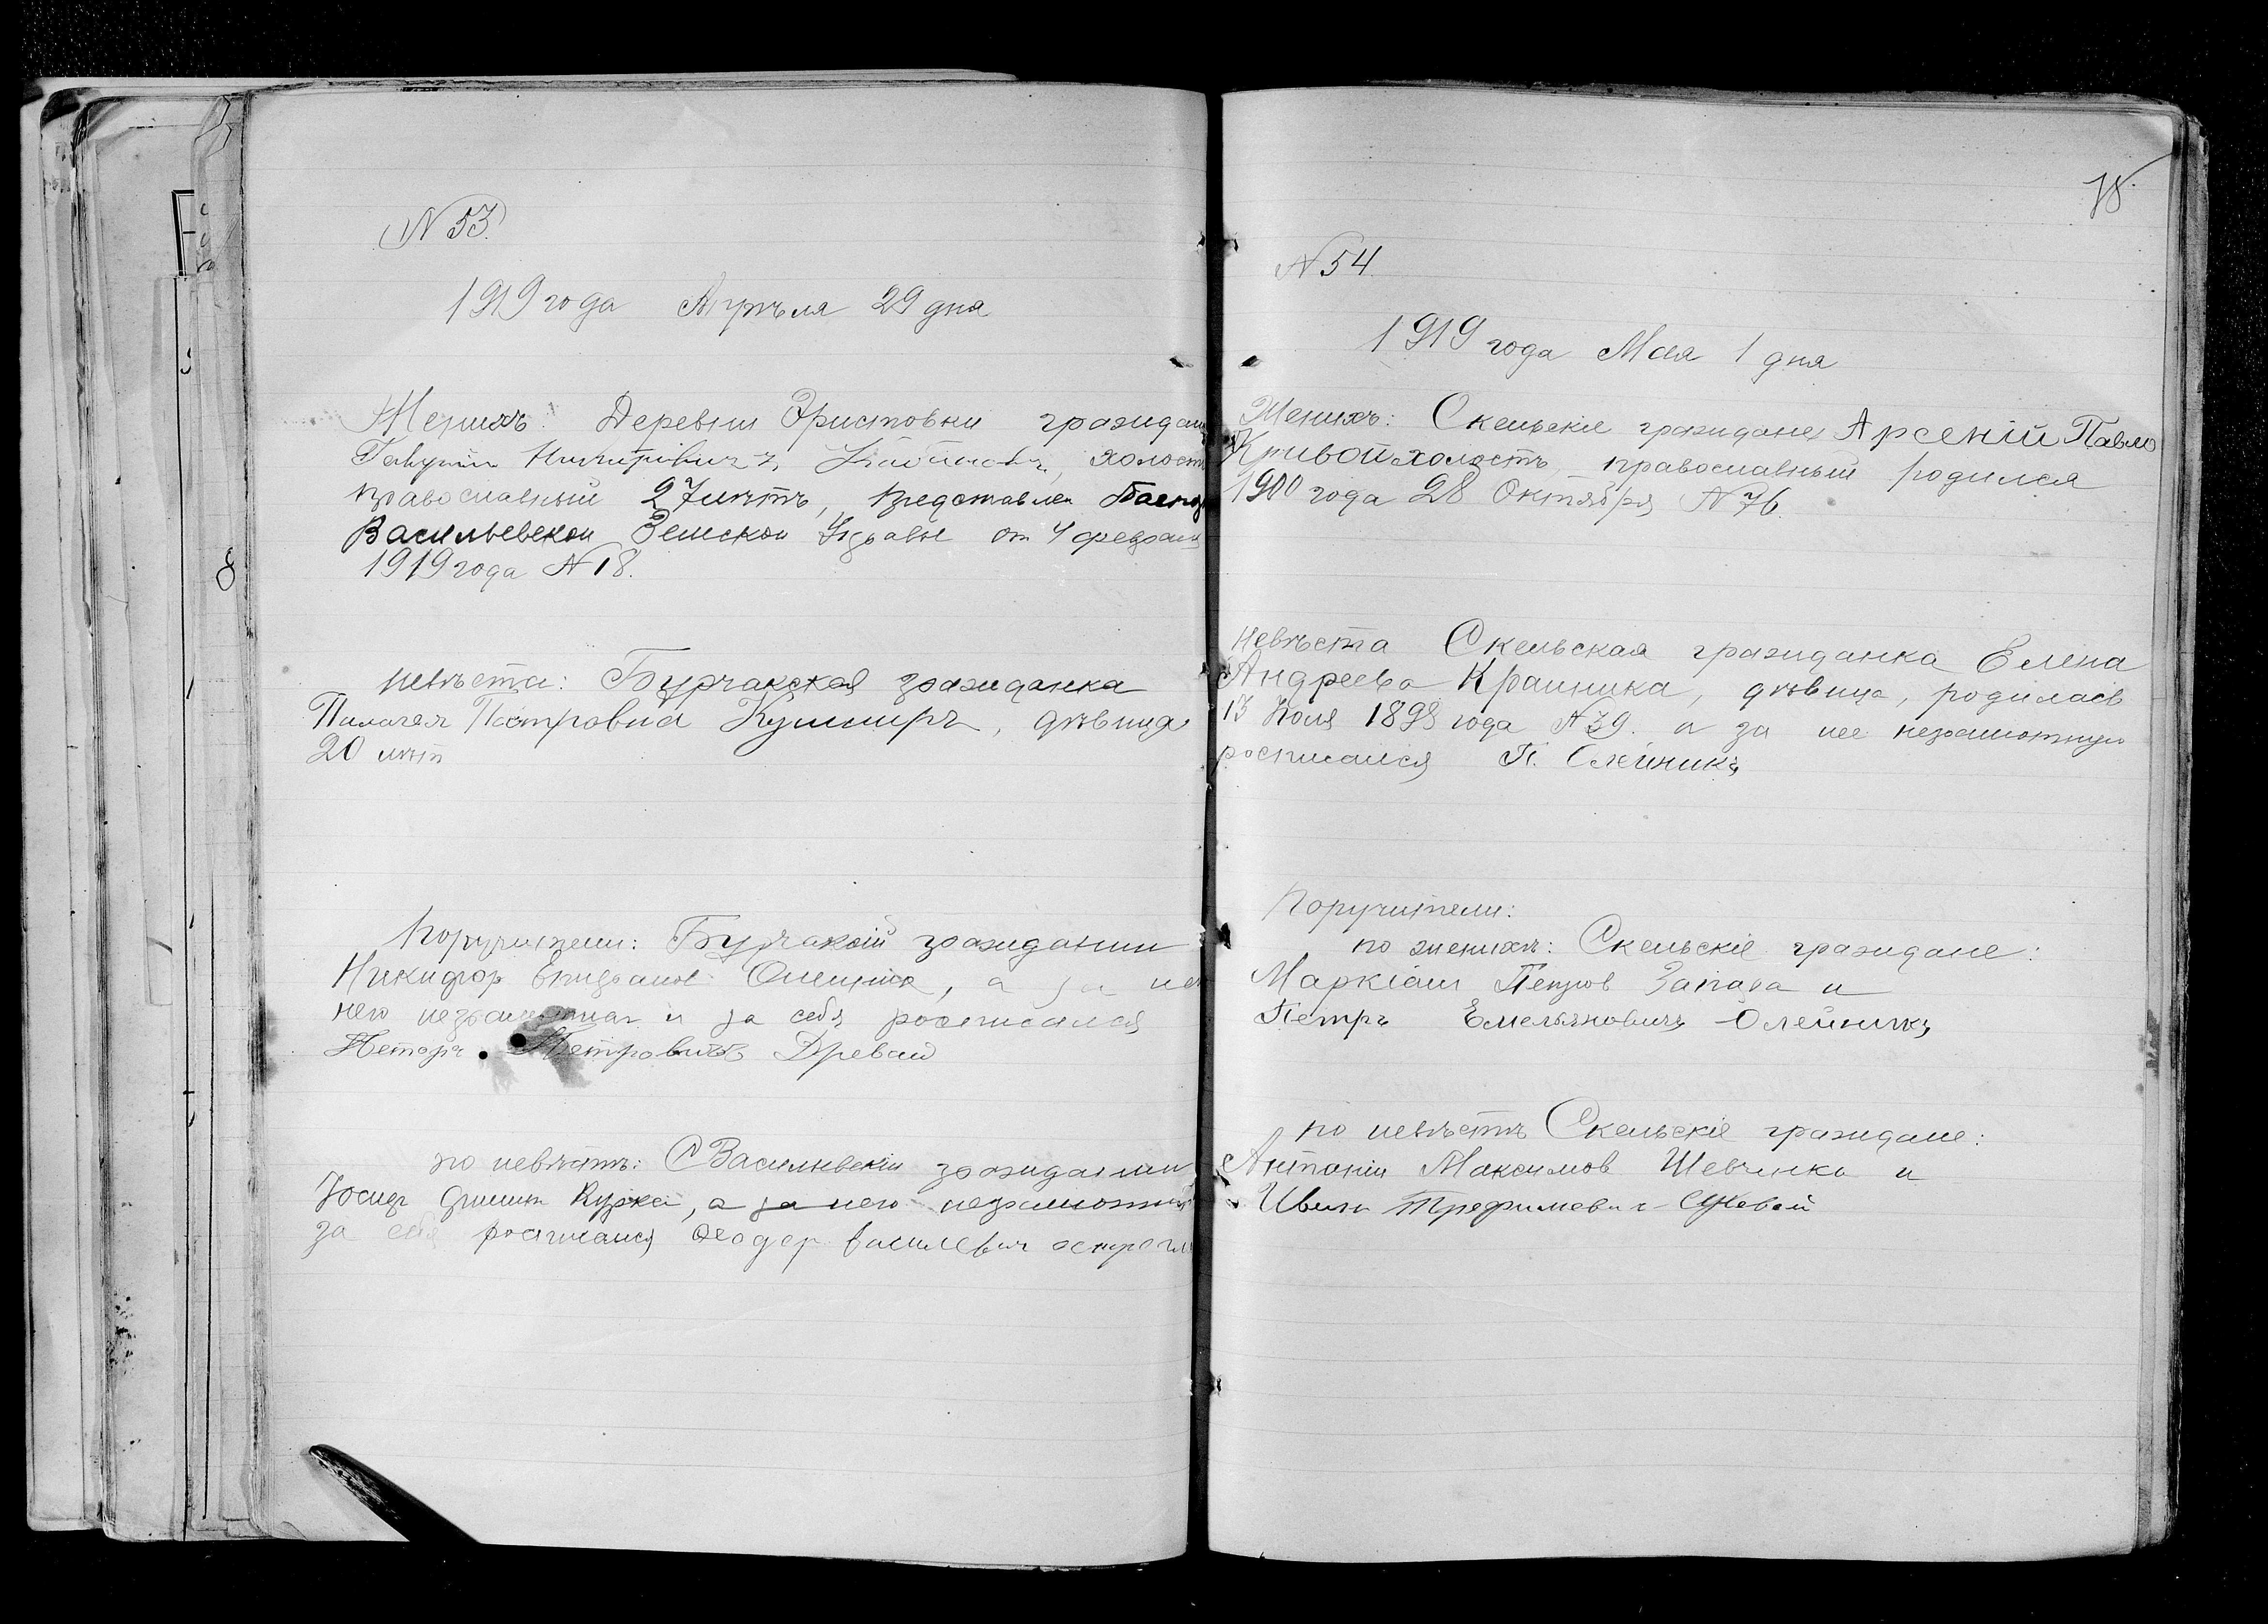 N 53
1919 года Апрѣля 29 дня
Женихъ: Деревни Эристовки граждан
холост
православный 27 лѣтъ, представлен
Васильевской Земской Управы от 4 феврал
1919 года N 18.
невѣста: Бурчакская гражданка
Палагея Петровна Кушниръ, дѣвица
20 лѣт
Поручители: Бурчакскій гражданин
Никифор, а за не
него неграмотнаг и за себя росписался
Петръ Петровичъ Древал
по невѣстѣ: С Василивскій гражданин
Іосиф Курка, а за него неграмотн
за себя росписался Феодор Василевич
78
N 54
1919 года Мая 1 дня
Женихъ: Скельскіе гражданех Арсеній Павло
Кривой холостъ православный родился
1900 года 28 Октября N 76
Невѣста Скельская гражданка Елена
Андреева Крашника, дѣвица, родилась
13 Іюля 1898 года N 39. а за нее неграмотную
росписался П. Олейникъ
Поручители:
по женихѣ: Скельскіе граждане:
Маркіан Петров Запара и
Петръ Емельяновичъ Олейникъ
по невѣстѣ Скельскіе граждане:
Антоній Максимов Шевченко и
Иван Трефимович